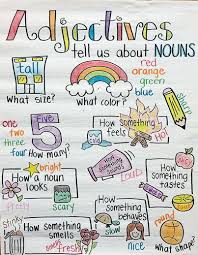 Adjectives
tell us about NOUNS
tall
red
orange
green
blue
What size?
what color?
sharp
one
two
three
four
5
How many?
How something
feels
bright
How a noun
looks
scary
How something
sounds
loud
How something
tastes
sticky
How something
smells
fresh
How something
behaves
nice
what shape?